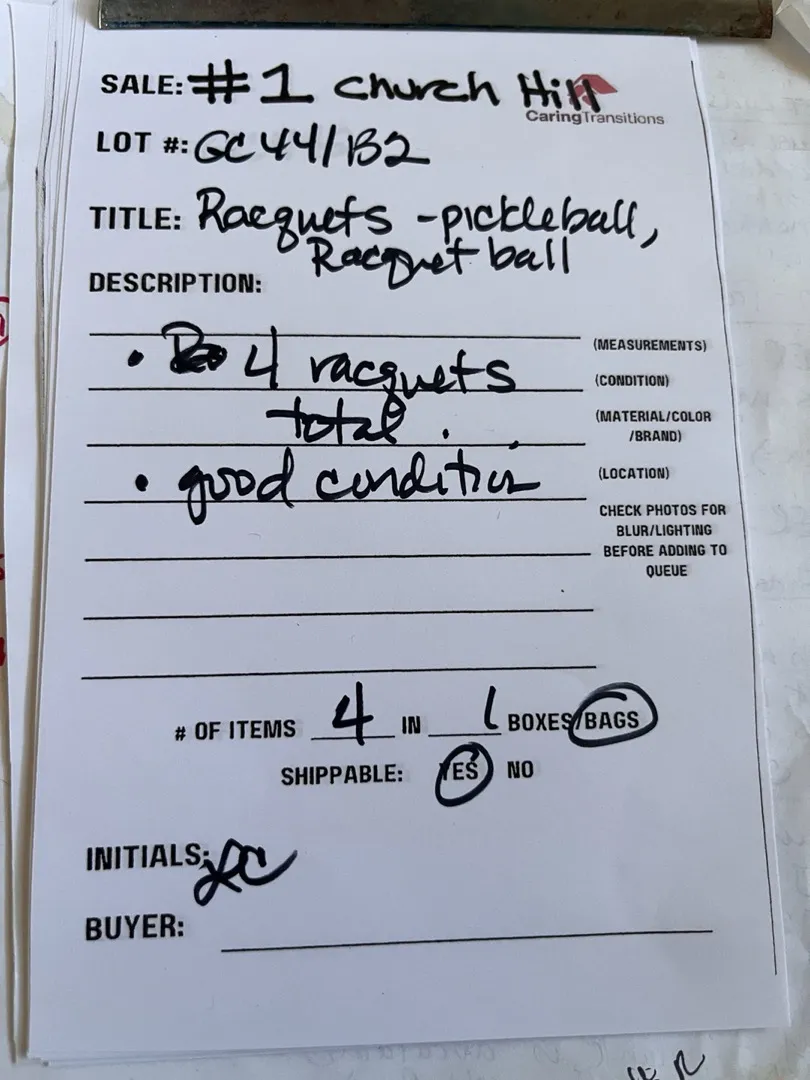 SALE: #1 Church Hill
CaringTransitions
LOT #: GC44/B2
TITLE: Racquets - pickleball,
Racquet ball
DESCRIPTION:
(MEASUREMENTS)
• 4 racquets
(CONDITION)
total.
(MATERIAL/COLOR
/BRAND)
• good condition
(LOCATION)
CHECK PHOTOS FOR
BLUR/LIGHTING
BEFORE ADDING TO
QUEUE
# OF ITEMS 4 IN 1 BOXES/BAGS
SHIPPABLE: YES NO
INITIALS: LC
BUYER: